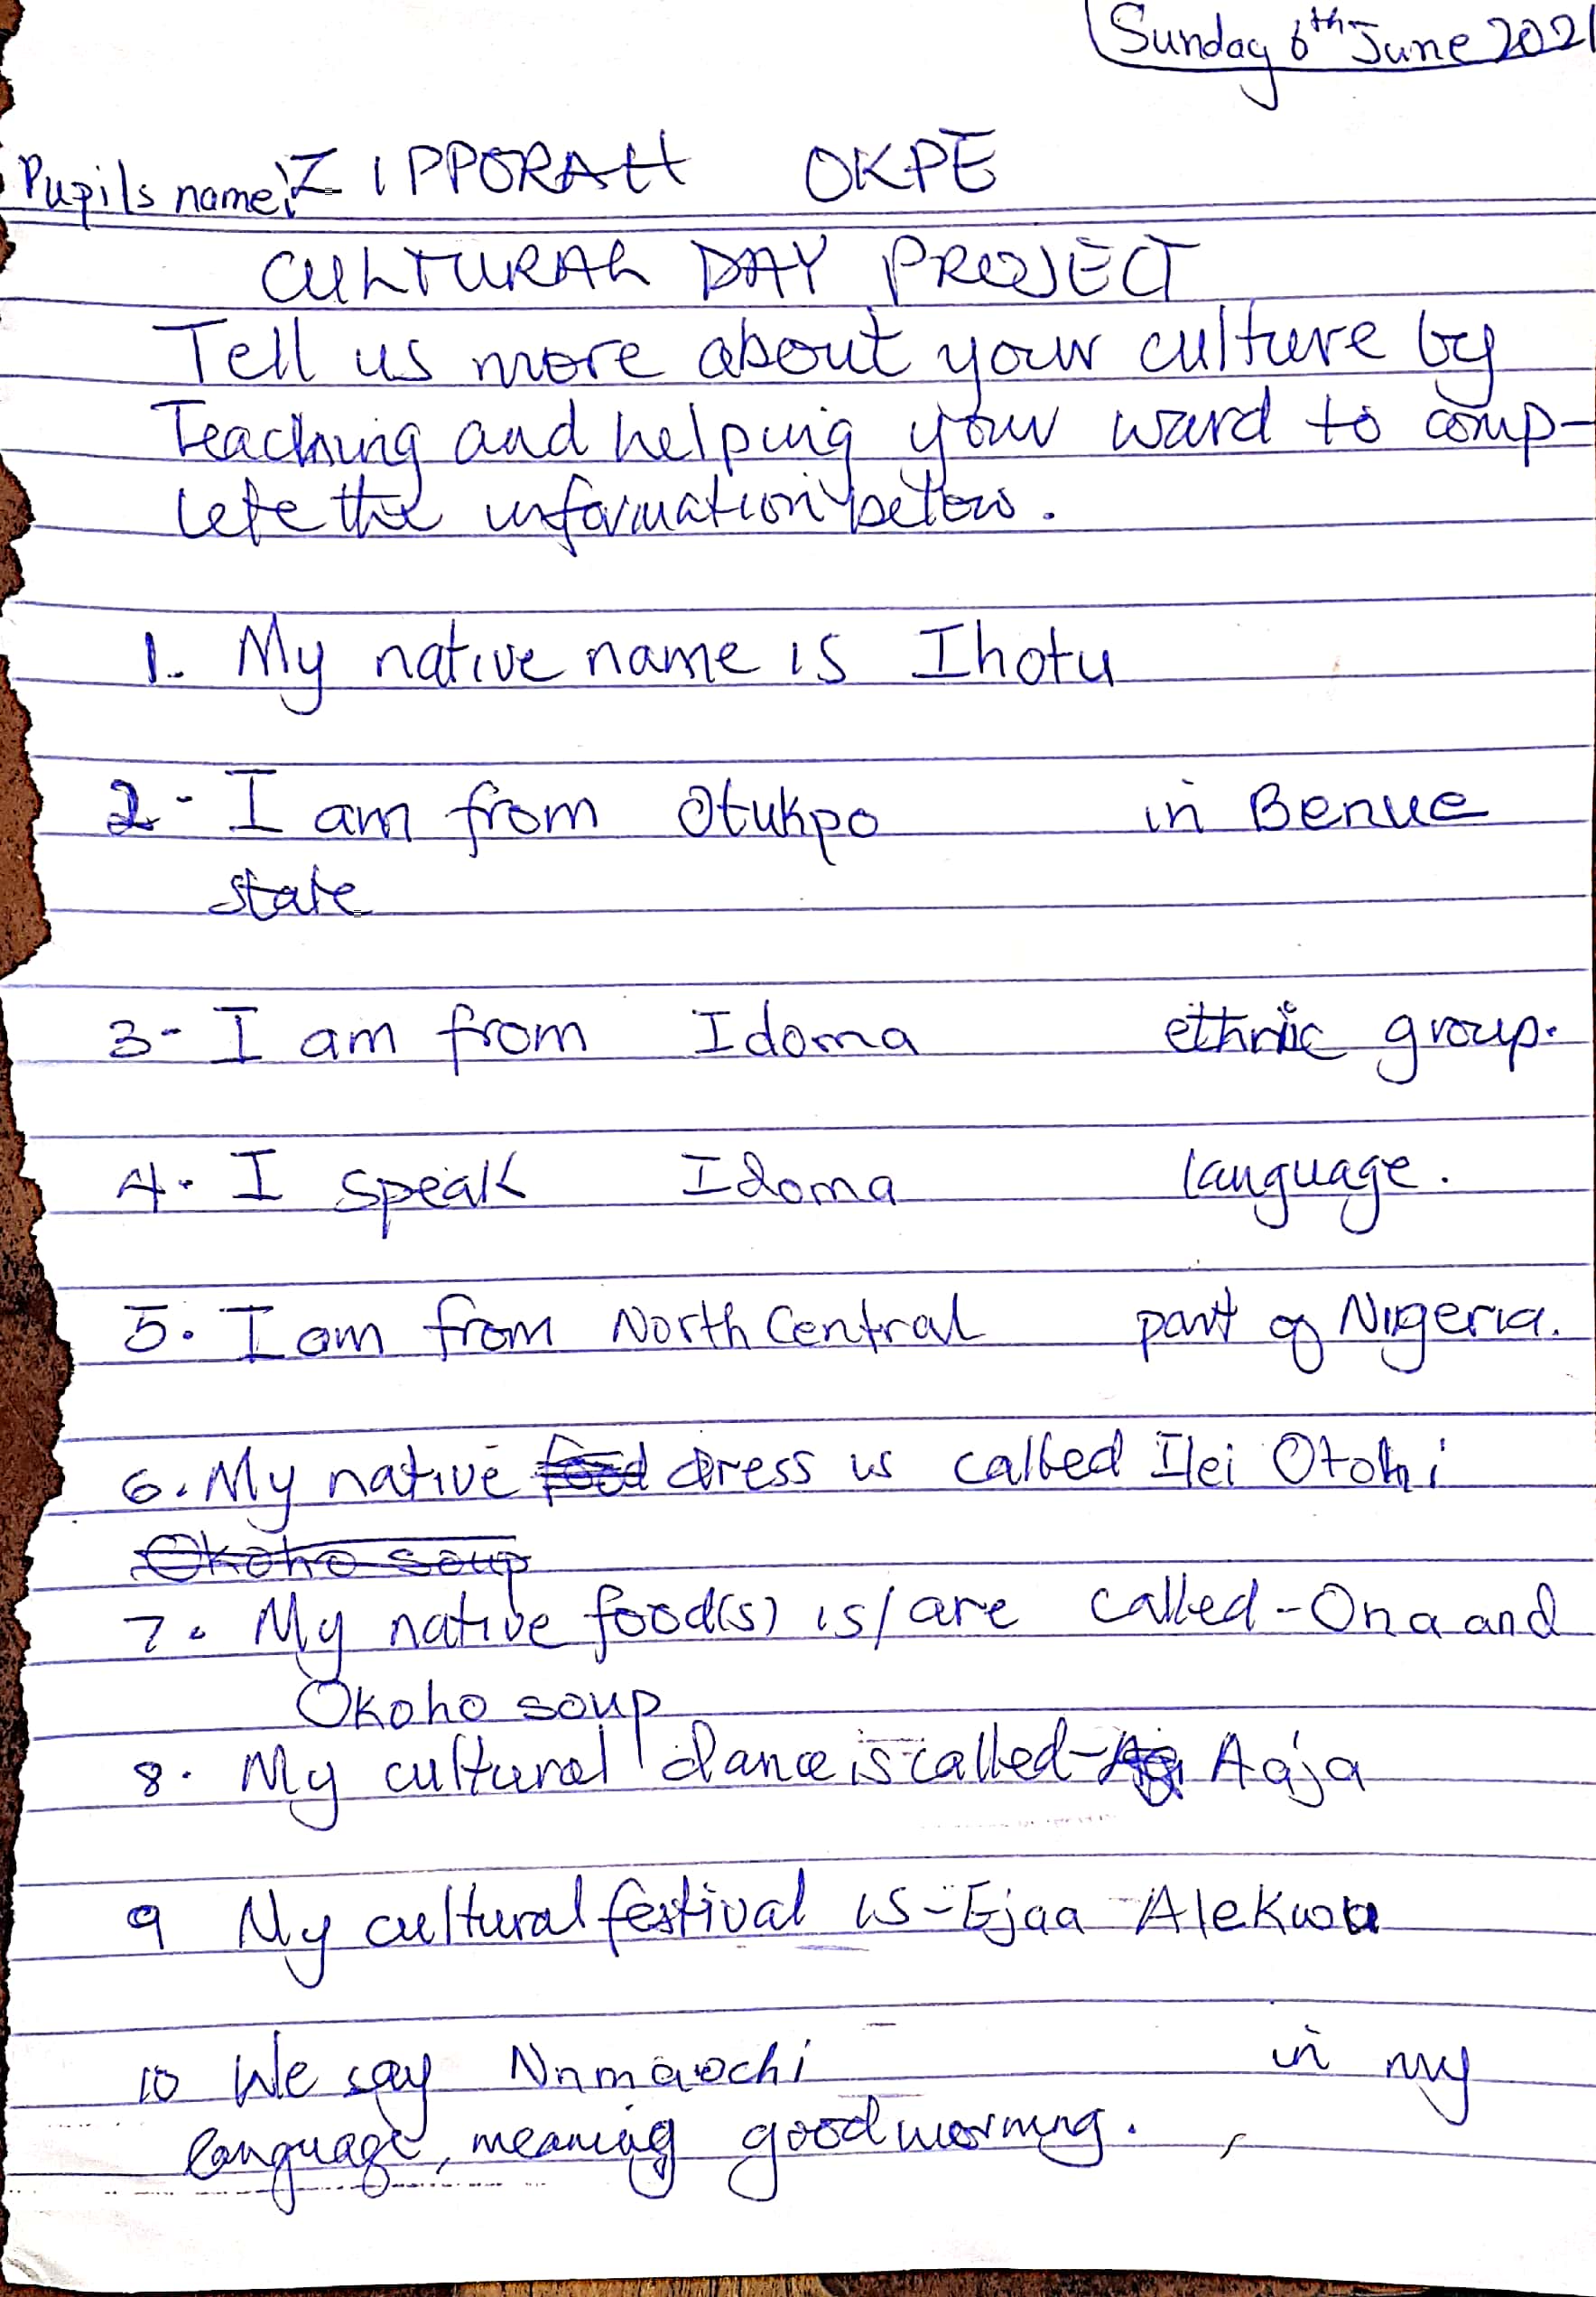 Sunday 6th June 2021
Pupils name: ZIPPORAH OKPE
CULTURAL DAY PROJECT
Tell us more about your culture by
Teaching and helping your ward to comp-
lete the information below.
1. My native name is Ihotu
2- I am from Otukpo in Benue
state
3- I am from Idoma ethnic group.
4. I speak Idoma language.
5. I am from North Central part of Nigeria.
6. My native food dress is called Ilei Otohi
Okoho soup
7. My native food(s) is/are called - Ona and
Okoho soup
8. My cultural dance is called - Aaja
9 My cultural festival is - Ejaa Alekwu
10 We say Nnmaochi in my
language, meaning good morning.